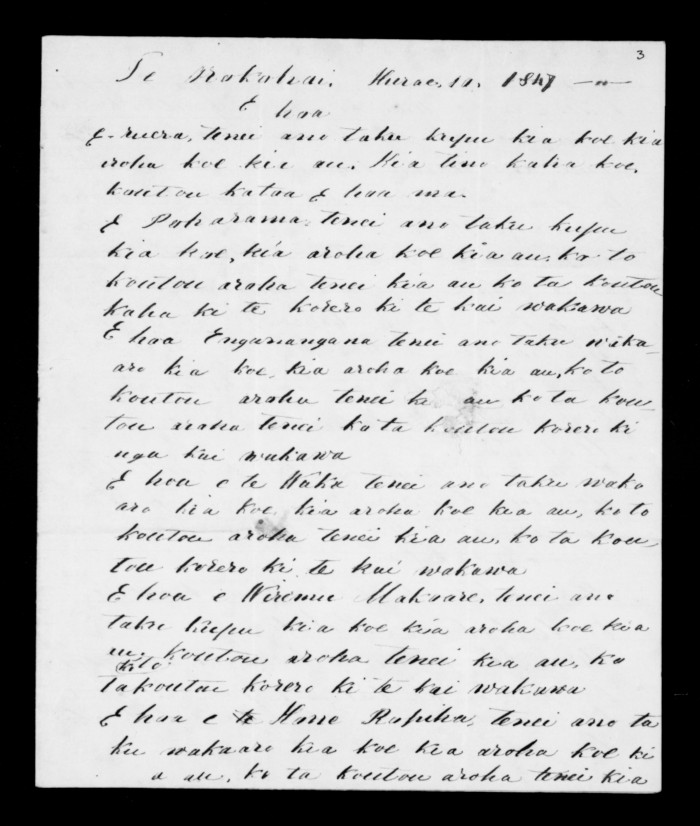 3
Te Nakahai. Hurae. 10. 1847
E hoa
E-ruera, tenei ano taku kupu kia koe kia
aroha koe kia au. Kia tino kaha koe,
koutou kataa E hoa ma.
E Paharama, tenei ano taku kupu
kia koe, kia aroha koe kia au, ko to
koutou aroha tenei kia au ko ta koutou
kaha ki te korero ki te kai wakawa
E hoa Engunangana tenei ano taku waka-
aro kia koe, kia aroha koe kia au, ko to
koutou aroha tenei ki au ko ta kou-
tou aroha tenei ko ta koutou korero ki
nga kai wakawa
E hoa e te Waka tenei ano taku waka
aro kia koe, kia aroha koe kia au, ko to
koutou aroha tenei kia au, ko ta kou-
tou korero ki te kai wakawa
E hoa e Wiremu Makaare, tenei ano
taku kupu kia koe kia aroha koe kia
au. ko to koutou aroha tenei kia au, ko
takoutou korero ki te kai wakawa
E hoa e te Hone Rapiha, tenei ano ta
ku wakaaro kia koe kia aroha koe ki
a au, ko ta koutou aroha tenei kia